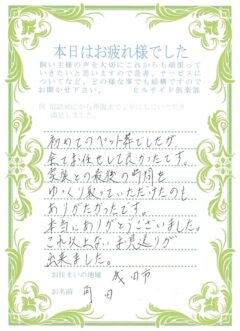 本日はお疲れ様でした
飼い主様の声を大切にこれからも頑張って
いきたいと思いますので是非、サービスに
ついてなど、どの様な事でも結構ですので
お聞かせ下さい。 ヒルサイド倶楽部
例 電話対応から葬儀まで丁寧にしていただき
満足しました。
初めてのペット葬でしたが、
全てお任せして良かったです。
家族との最後の時間を
ゆっくり取っていただけたのも
ありがたかったです。
本当にありがとうございました。
これ以上ないお見送りが
出来ました。
お住まいの地域 成田市
お名前 角田